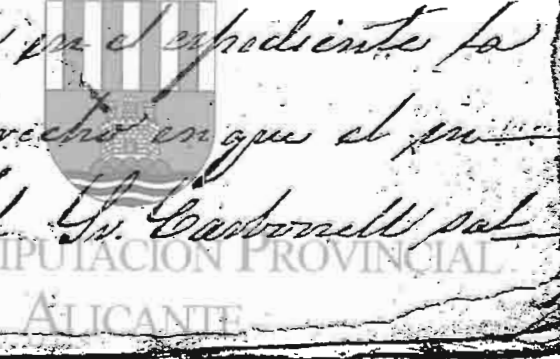 en el espediente la
recho en que el in-
Sr. Carbonell sal-
DIPUTACIÓN PROVINCIAL
ALICANTE